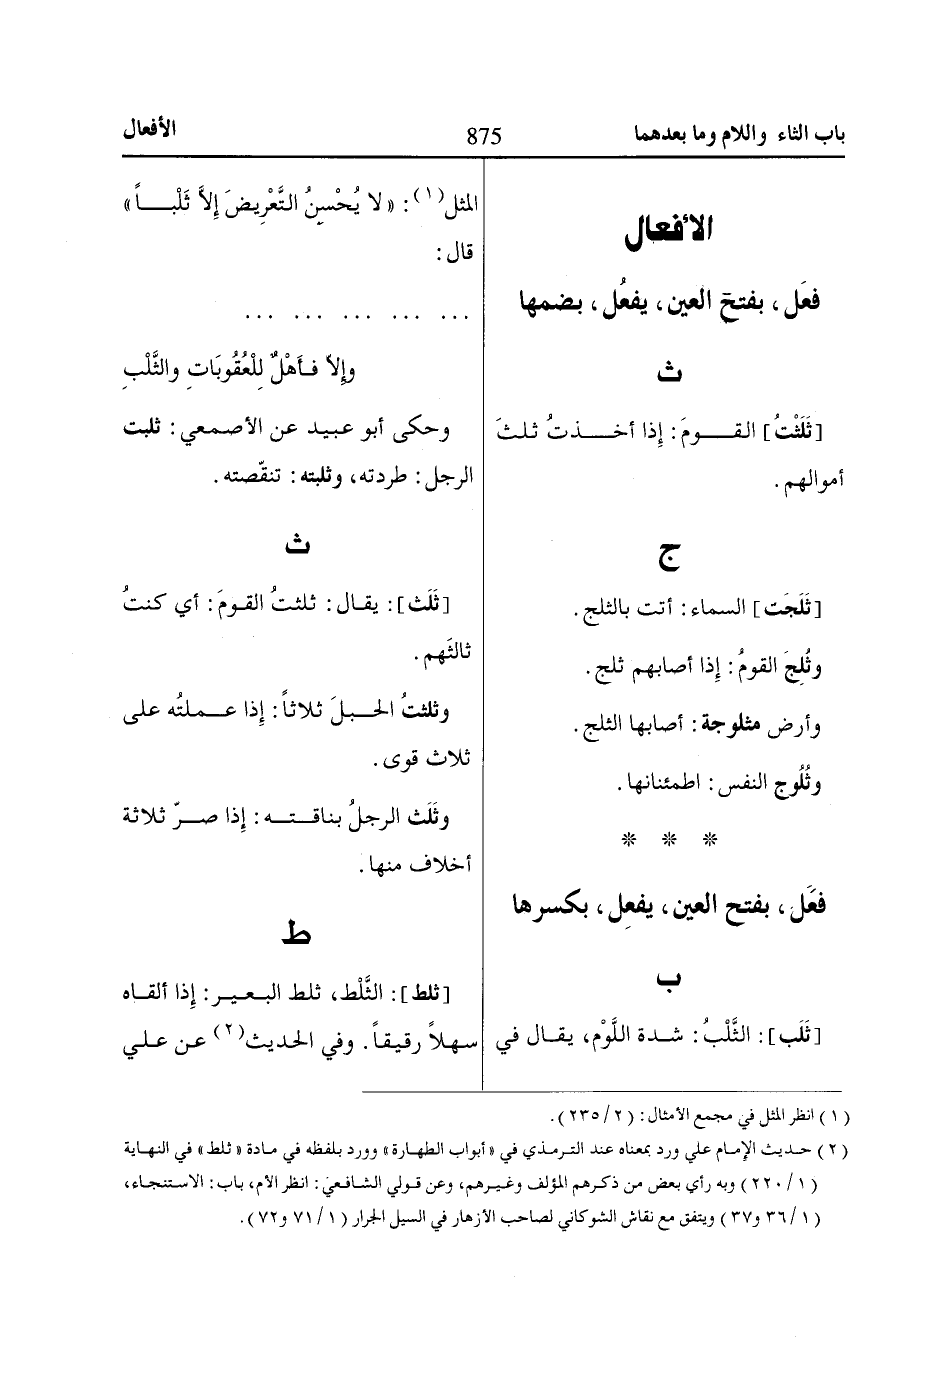 باب الثاء واللام وما بعدهما
875
الأفعال
الأفعال
فعَل، بفتح العين، يفعُل، بضمها
ث
[ثَلَثْتُ] القـــومَ: إذا أخـــذتُ ثلـثَ
أموالهم.
ج
[ثَلَجَت] السماء: أتت بالثلج.
وثُلِجَ القومُ: إذا أصابهم ثلج.
وأرض مثلوجة: أصابها الثلج.
وثُلُوج النفس: اطمئنانها.
* * *
فعَل، بفتح العين، يفعِل، بكسرها
ب
[ثَلَب]: الثَّلْبُ: شدة اللَّوْم، يقال في
المثل(١): «لا يُحْسِنُ التَّعْرِيضَ إلاَّ ثَلْبـــاً»
قال:
... ... ... ... ...
وإلاّ فـأَهْلٌ لِلْعُقُوبَاتِ والثَّلْبِ
وحكى أبو عبيد عن الأصمعي: ثلبت
الرجل: طردته، وثلبته: تنقّصته.
ث
[ثَلَث]: يقال: ثلثتُ القومَ: أي كنتُ
ثالثَهم.
وثلثتُ الحبلَ ثلاثاً: إذا عملتُه على
ثلاث قوى.
وثَلَث الرجلُ بناقتـه: إذا صـرّ ثلاثة
أخلاف منها.
ط
[ثلط]: الثَّلْط، ثلط البعيـر: إذا ألقاه
سهلاً رقيقاً. وفي الحديث(٢) عن علي
(١) انظر المثل في مجمع الأمثال: (٢/ ٢٣٥).
(٢) حديث الإمام علي ورد بمعناه عند الترمذي في «أبواب الطهارة» وورد بلفظه في مادة «ثلط» في النهاية
(١/ ٢٢٠) وبه رأي بعض من ذكرهم المؤلف وغيرهم، وعن قولي الشافعي: انظر الأم، باب: الاستنجاء،
(١/ ٣٦ و٣٧) ويتفق مع نقاش الشوكاني لصاحب الأزهار في السيل الجرار (١/ ٧١ و٧٢).